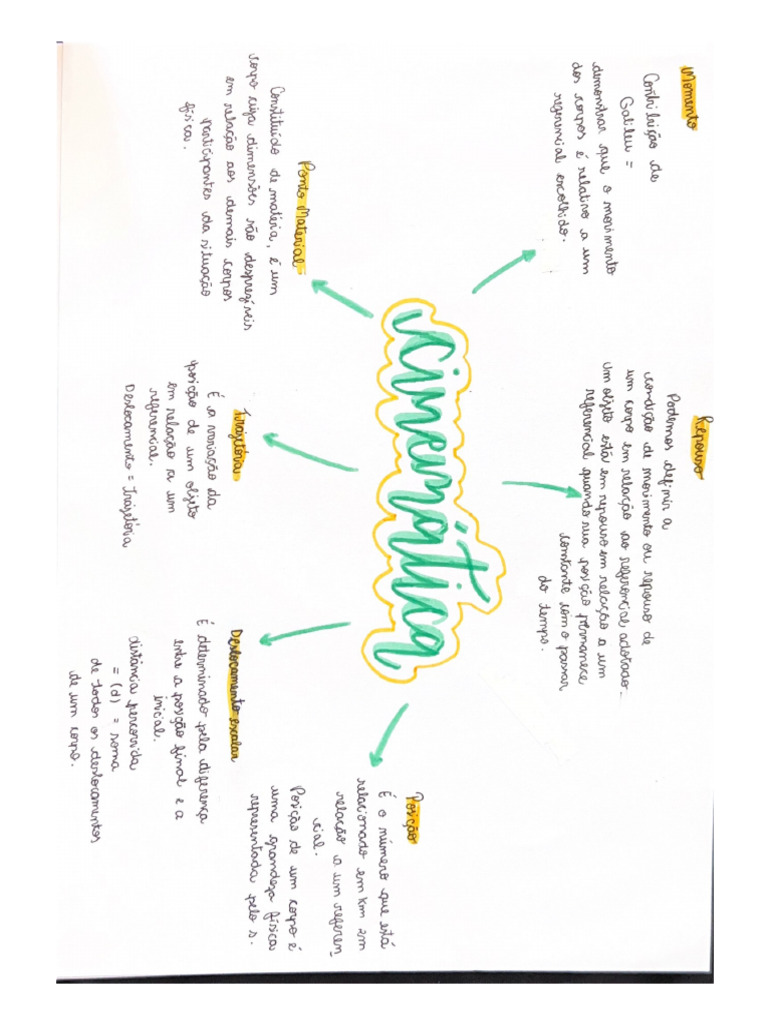 Momento
Contribuição de
Galileu =
demonstrar que o movimento
dos corpos é relativo a um
referencial escolhido.
Repouso
Podemos definir a
condição de movimento ou repouso de
um corpo em relação ao referencial adotado.
Um objeto está em repouso em relação a um
referencial quando sua posição permanece
constante com o passar
do tempo.
cinemática
Ponto Material
Constituído de matéria, é um
corpo cuja dimensões são desprezíveis
em relação aos demais corpos
participantes da situação
física.
Trajetória
É a variação da
posição de um objeto
em relação a um
referencial.
Deslocamento = Trajetória
Deslocamento escalar
É determinado pela diferença
entre a posição final e a
inicial.
distância percorrida
= (d) = soma
de todos os deslocamentos
de um corpo.
Posição
É o número que está
relacionado em Km em
relação a um referen
cial.
Posição de um corpo é
uma grandeza física
representada pelo s.